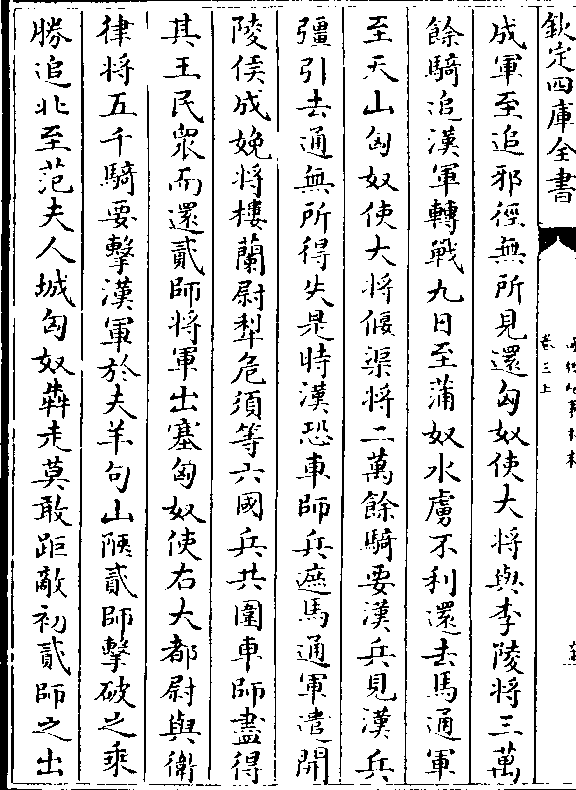 欽定四庫全書
卷三上
成軍至追邪徑無所見還匈奴使大將與李陵將三萬
餘騎追漢軍轉戰九日至蒲奴水虜不利還去馬通軍
至天山匈奴使大將偃渠將二萬餘騎要漢兵見漢兵
彊引去通無所得失是時漢恐車師兵遮馬通軍遣開
陵侯成娩將樓蘭尉犁危須等六國兵共圍車師盡得
其王民衆而還貳師將軍出塞匈奴使右大都尉與衛
律將五千騎要擊漢軍於夫羊句山陿貳師擊破之乘
勝追北至范夫人城匈奴犇走莫敢距敵初貳師之出